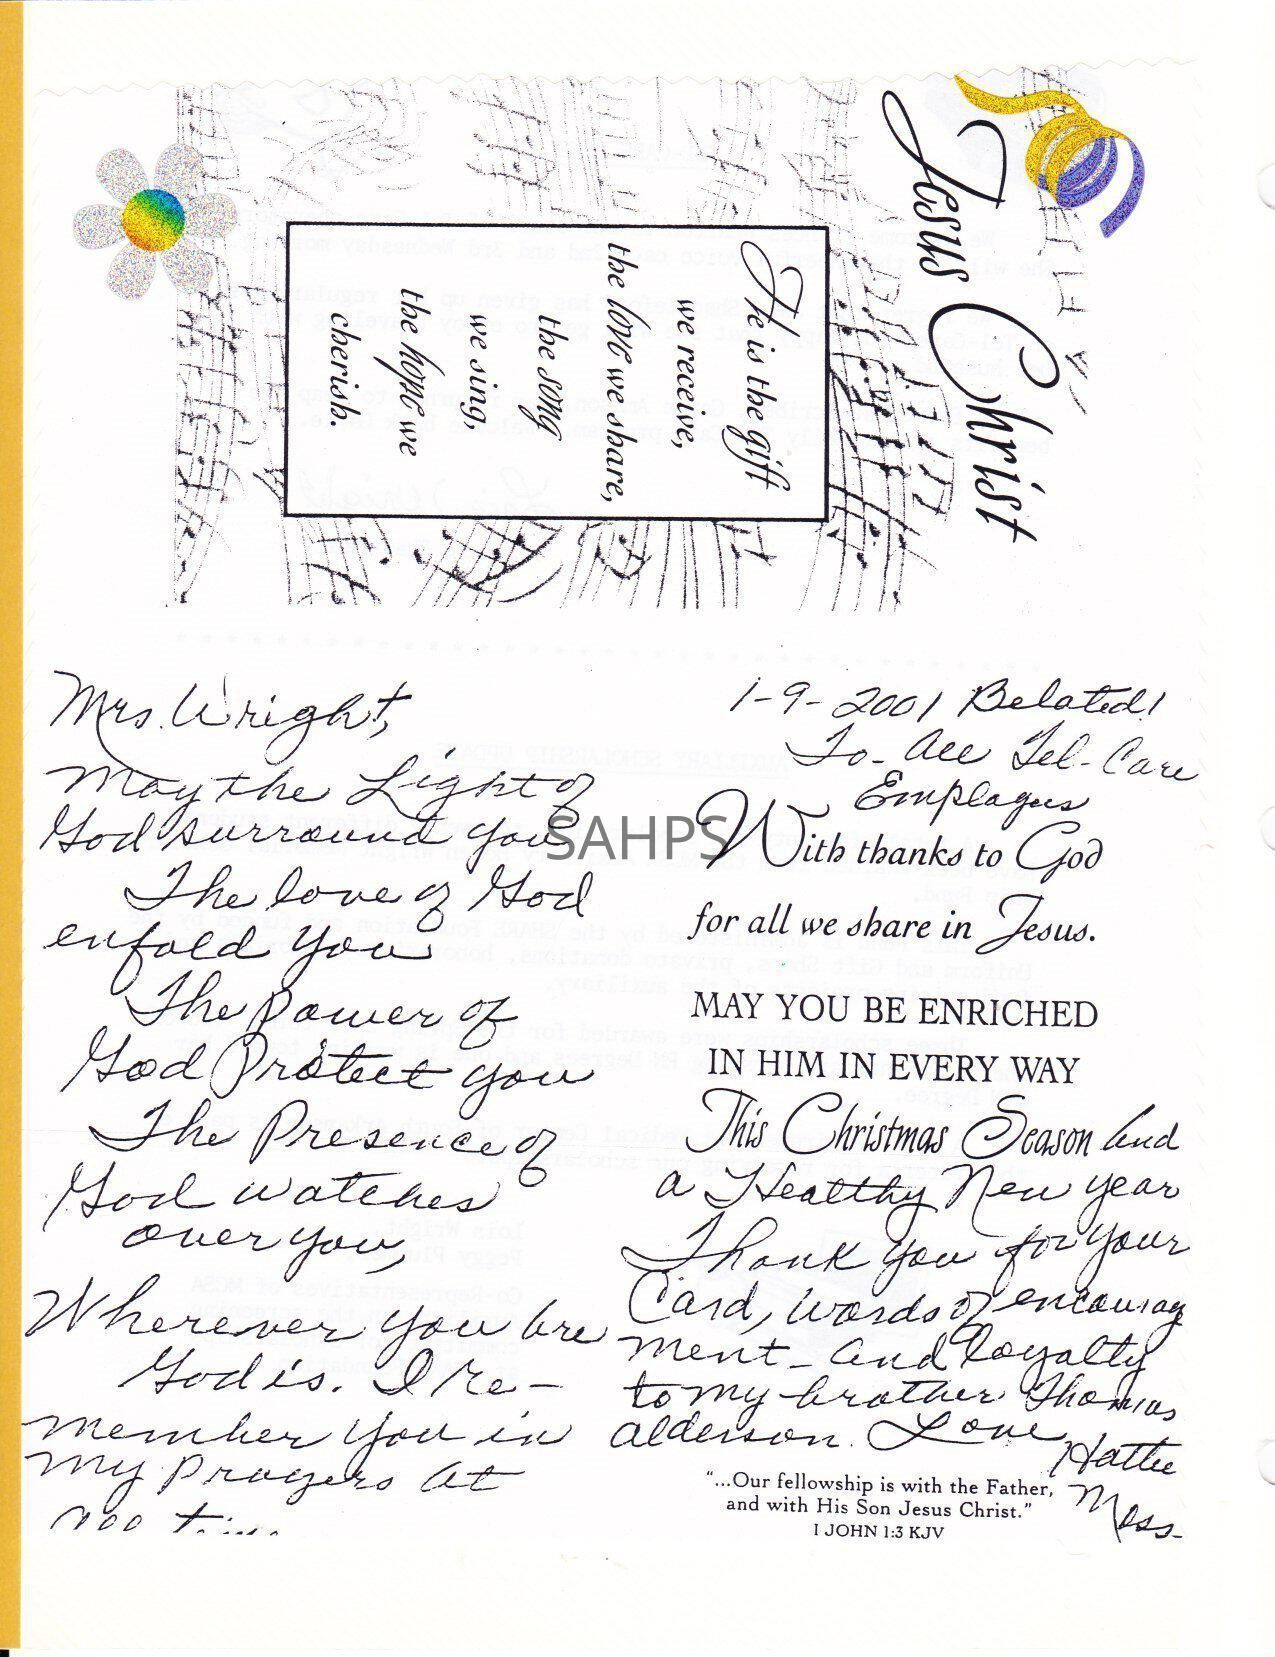 Jesus Christ
He is the gift
we receive,
the love we share,
the song
we sing,
the hope we
cherish.
Mrs. Wright,
May the Light of
God surround you
The love of God
enfold You
The Power of
God Protect you
The Presence of
God watches
over you,
Wherever you are
God is. I re-
member you in
my prayers at
1-9-2001 Belated!
To- All Tel-Care
Employees
With thanks to God
for all we share in Jesus.
MAY YOU BE ENRICHED
IN HIM IN EVERY WAY
This Christmas Season and
a Healthy New year
Thank you for your
Card, words of encourag
ment - and loyalty
to my brother Thomas
Alderson. Love
Hattie
Moss
"...Our fellowship is with the Father,
and with His Son Jesus Christ."
I JOHN 1:3 KJV
SAHPS